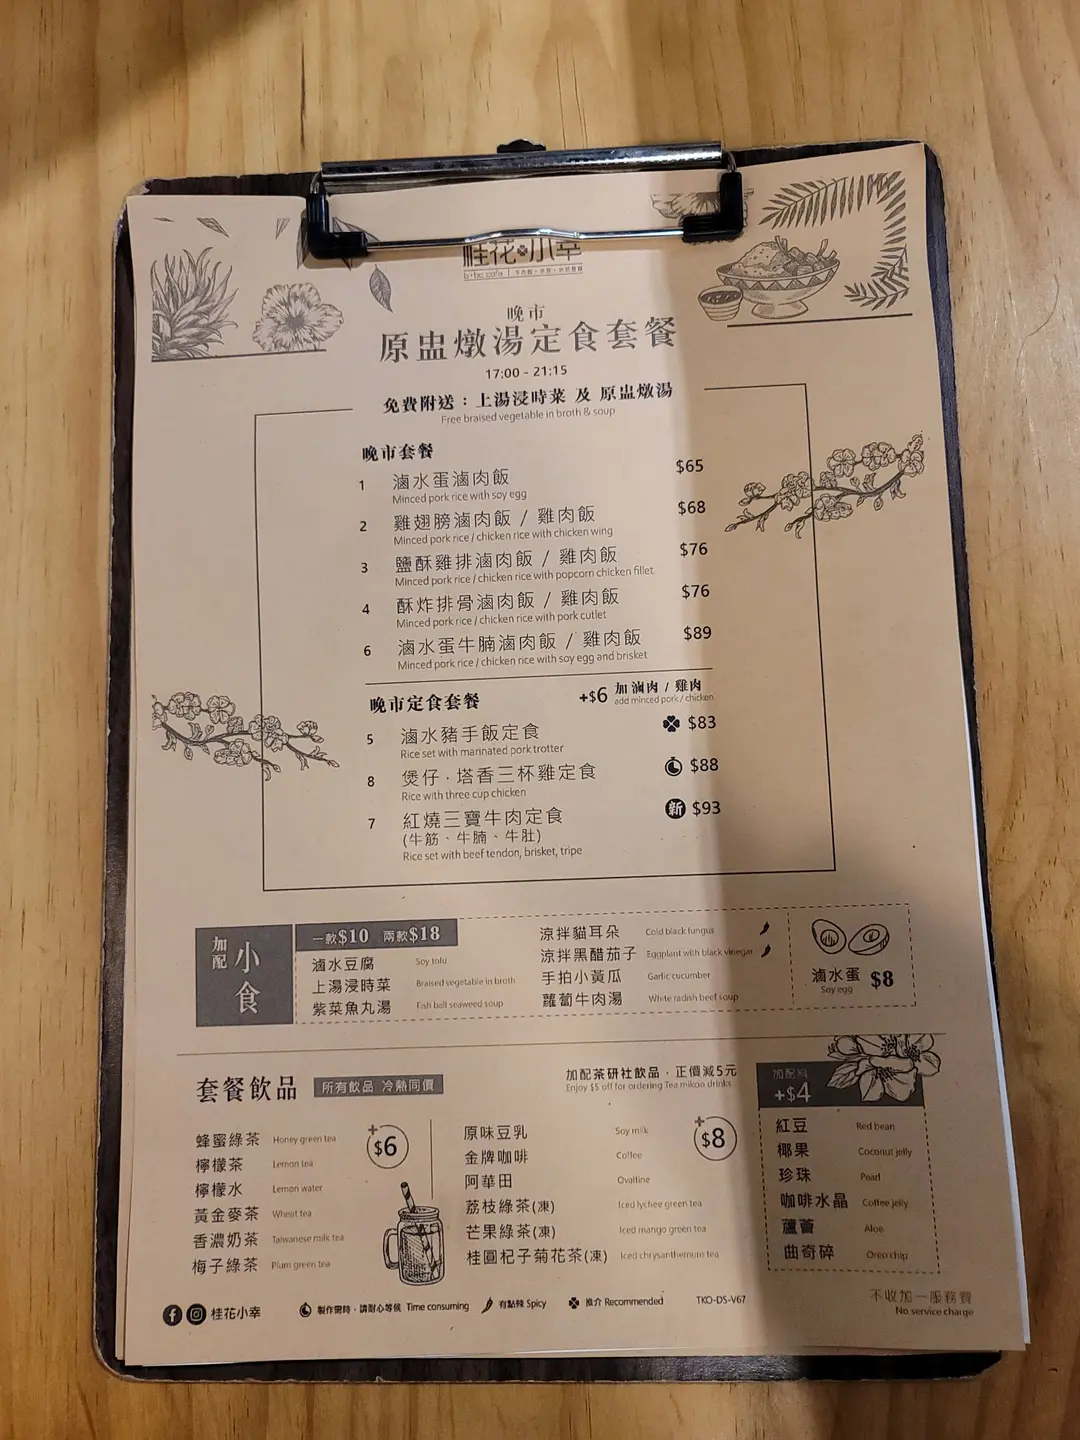 桂花小幸
b+bc cafe
晚市
原盅燉湯定食套餐
17:00 - 21:15
免費附送：上湯浸時菜 及 原盅燉湯
Free braised vegetable in broth & soup
晚市套餐
1 滷水蛋滷肉飯 $65
Minced pork rice with soy egg
2 雞翅膀滷肉飯 / 雞肉飯 $68
Minced pork rice / chicken rice with chicken wing
3 鹽酥雞排滷肉飯 / 雞肉飯 $76
Minced pork rice / chicken rice with popcorn chicken fillet
4 酥炸排骨滷肉飯 / 雞肉飯 $76
Minced pork rice / chicken rice with pork cutlet
6 滷水蛋牛腩滷肉飯 / 雞肉飯 $89
Minced pork rice / chicken rice with soy egg and brisket
晚市定食套餐 +$6 加滷肉 / 雞肉
add minced pork / chicken
5 滷水豬手飯定食 $83
Rice set with marinated pork trotter
8 煲仔．塔香三杯雞定食 $88
Rice with three cup chicken
7 紅燒三寶牛肉定食 新 $93
(牛筋、牛腩、牛肚)
Rice set with beef tendon, brisket, tripe
加配 小食
一款$10 兩款$18
滷水豆腐 Soy tofu
上湯浸時菜 Braised vegetable in broth
紫菜魚丸湯 Fish ball seaweed soup
涼拌貓耳朵 Cold black fungus
涼拌黑醋茄子 Eggplant with black vinegar
手拍小黃瓜 Garlic cucumber
蘿蔔牛肉湯 White radish beef soup
滷水蛋 $8
Soy egg
套餐飲品 所有飲品 冷熱同價
加配茶研社飲品．正價減5元
Enjoy $5 off for ordering Tea mikoo drinks
+$6
蜂蜜綠茶 Honey green tea
檸檬茶 Lemon tea
檸檬水 Lemon water
黃金麥茶 Wheat tea
香濃奶茶 Taiwanese milk tea
梅子綠茶 Plum green tea
+$8
原味豆乳 Soy milk
金牌咖啡 Coffee
阿華田 Ovaltine
荔枝綠茶(凍) Iced lychee green tea
芒果綠茶(凍) Iced mango green tea
桂圓杞子菊花茶(凍) Iced chrysanthemum tea
加配料
+$4
紅豆 Red bean
椰果 Coconut jelly
珍珠 Pearl
咖啡水晶 Coffee jelly
蘆薈 Aloe
曲奇碎 Oreo chip
桂花小幸 製作需時，請耐心等候 Time consuming 有點辣 Spicy 推介 Recommended TKO-DS-V67
不收加一服務費
No service charge